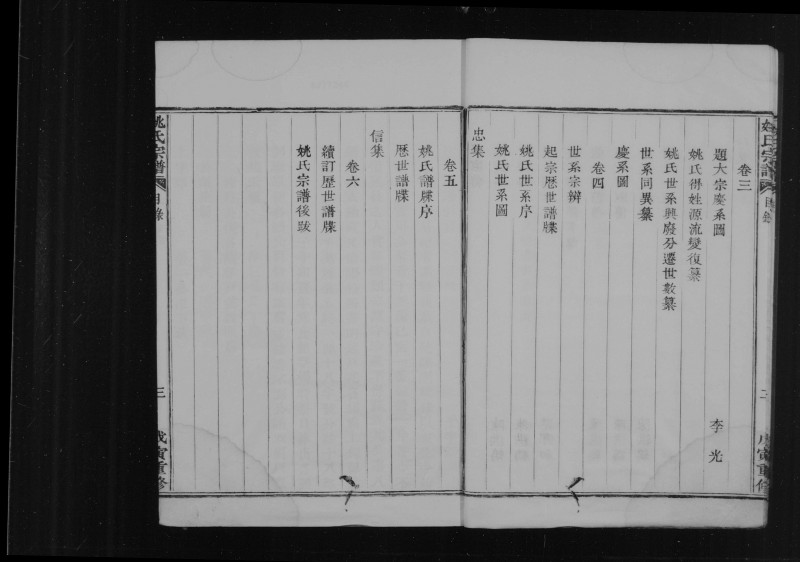 姚氏宗譜 目錄 二 戊寅重修
卷三
題大宗慶系圖 李光
姚氏得姓源流變復纂
姚氏世系興廢分遷世數纂
世系同異纂
慶系圖
卷四
世系宗辦
起宗歷世譜牒
姚氏世系序
姚氏世系圖
忠集
卷五
姚氏譜牒序
歷世譜牒
信集
卷六
續訂歷世譜牒
姚氏宗譜後跋
姚氏宗譜 目錄 三 戊寅重修